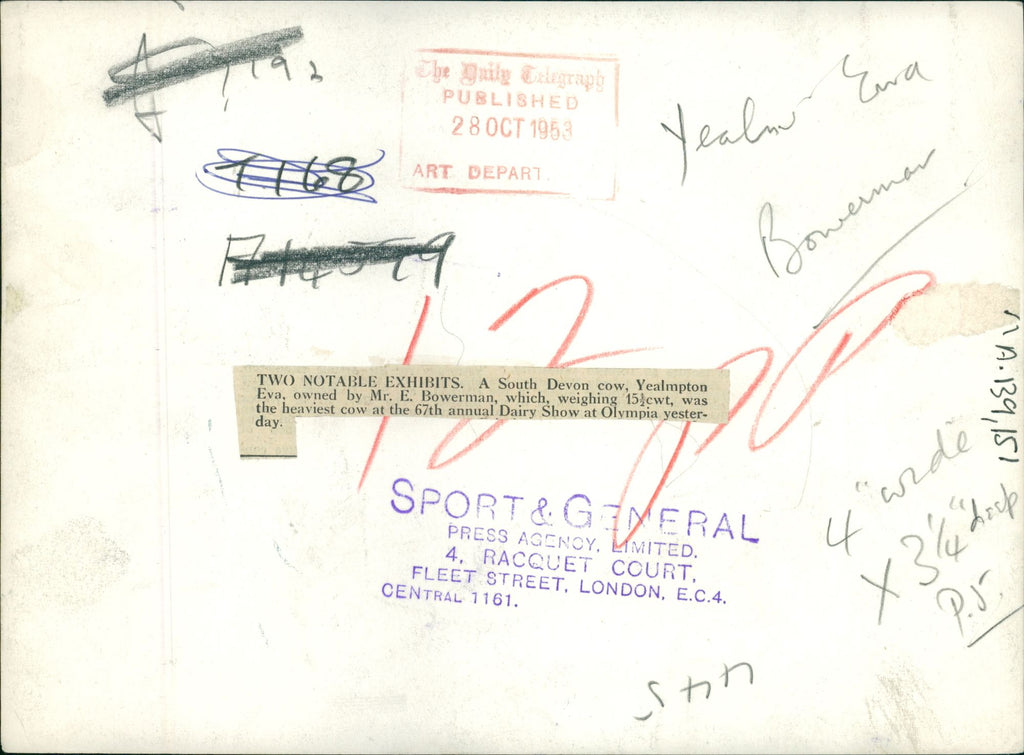 7192
The Daily Telegraph
PUBLISHED
28 OCT 1953
ART DEPART.
Yealm Eva
Bowerman
7168
TWO NOTABLE EXHIBITS. A South Devon cow, Yealmpton
Eva, owned by Mr. E. Bowerman, which, weighing 15½cwt, was
the heaviest cow at the 67th annual Dairy Show at Olympia yester-
day.
SPORT & GENERAL
PRESS AGENCY, LIMITED.
4, RACQUET COURT,
FLEET STREET, LONDON, E.C.4.
CENTRAL 1161.
139,151
4" wide
x 3¼" deep
P.5.